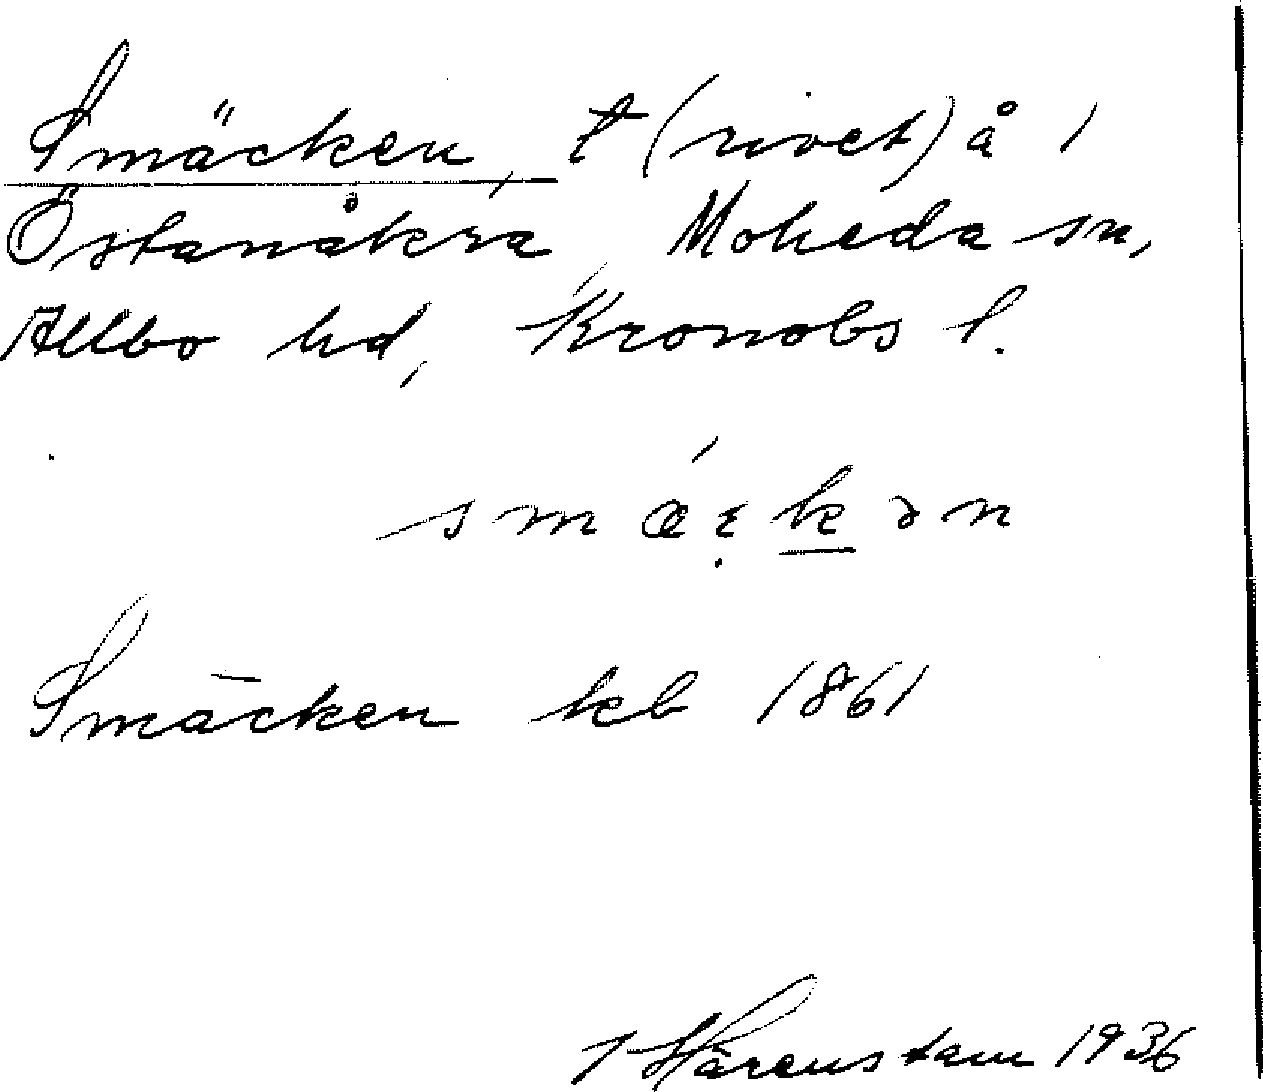 Smäcken, t (rivet) å 1
Östanåkra, Moheda sn,
Allbo hd, Kronobs l.
smǽꞓ̣k̲ən
Smäcken kb 1861
J Härenstam 1936